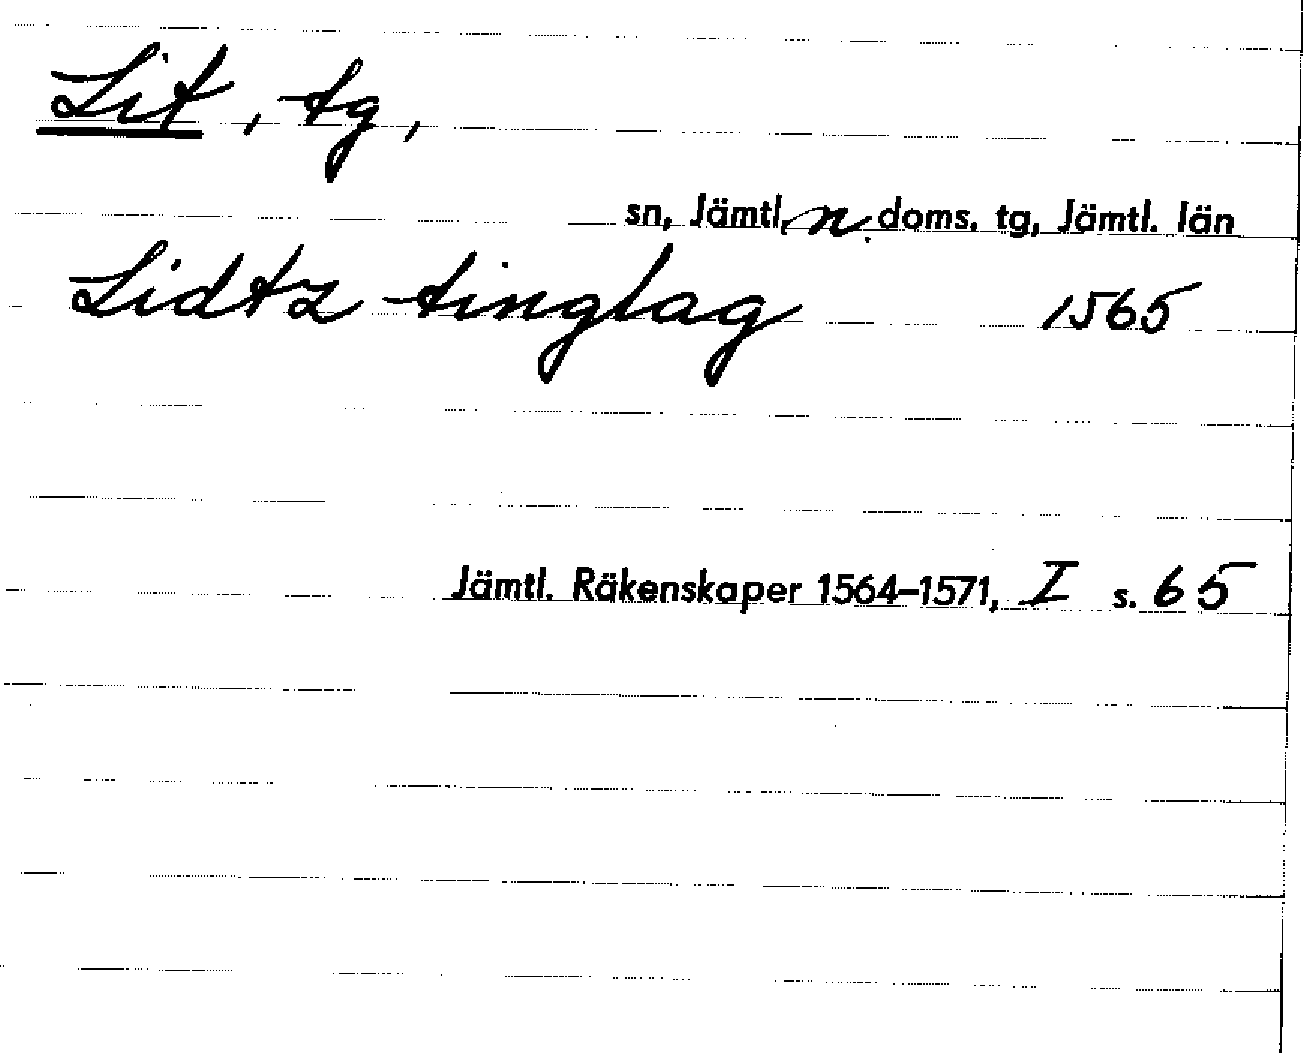 Lit, tg,
sn, Jämtl. n. doms. tg, Jämtl. län
Lidtz tinglag 1565
Jämtl. Räkenskaper 1564–1571, I s. 65